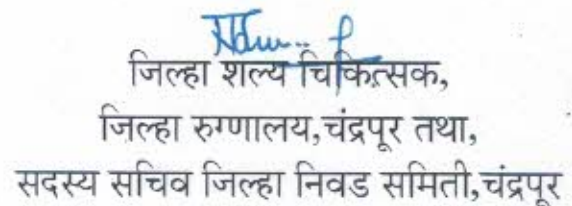 जिल्हा शल्य चिकित्सक,
जिल्हा रुग्णालय,चंद्रपूर तथा,
सदस्य सचिव जिल्हा निवड समिती,चंद्रपूर